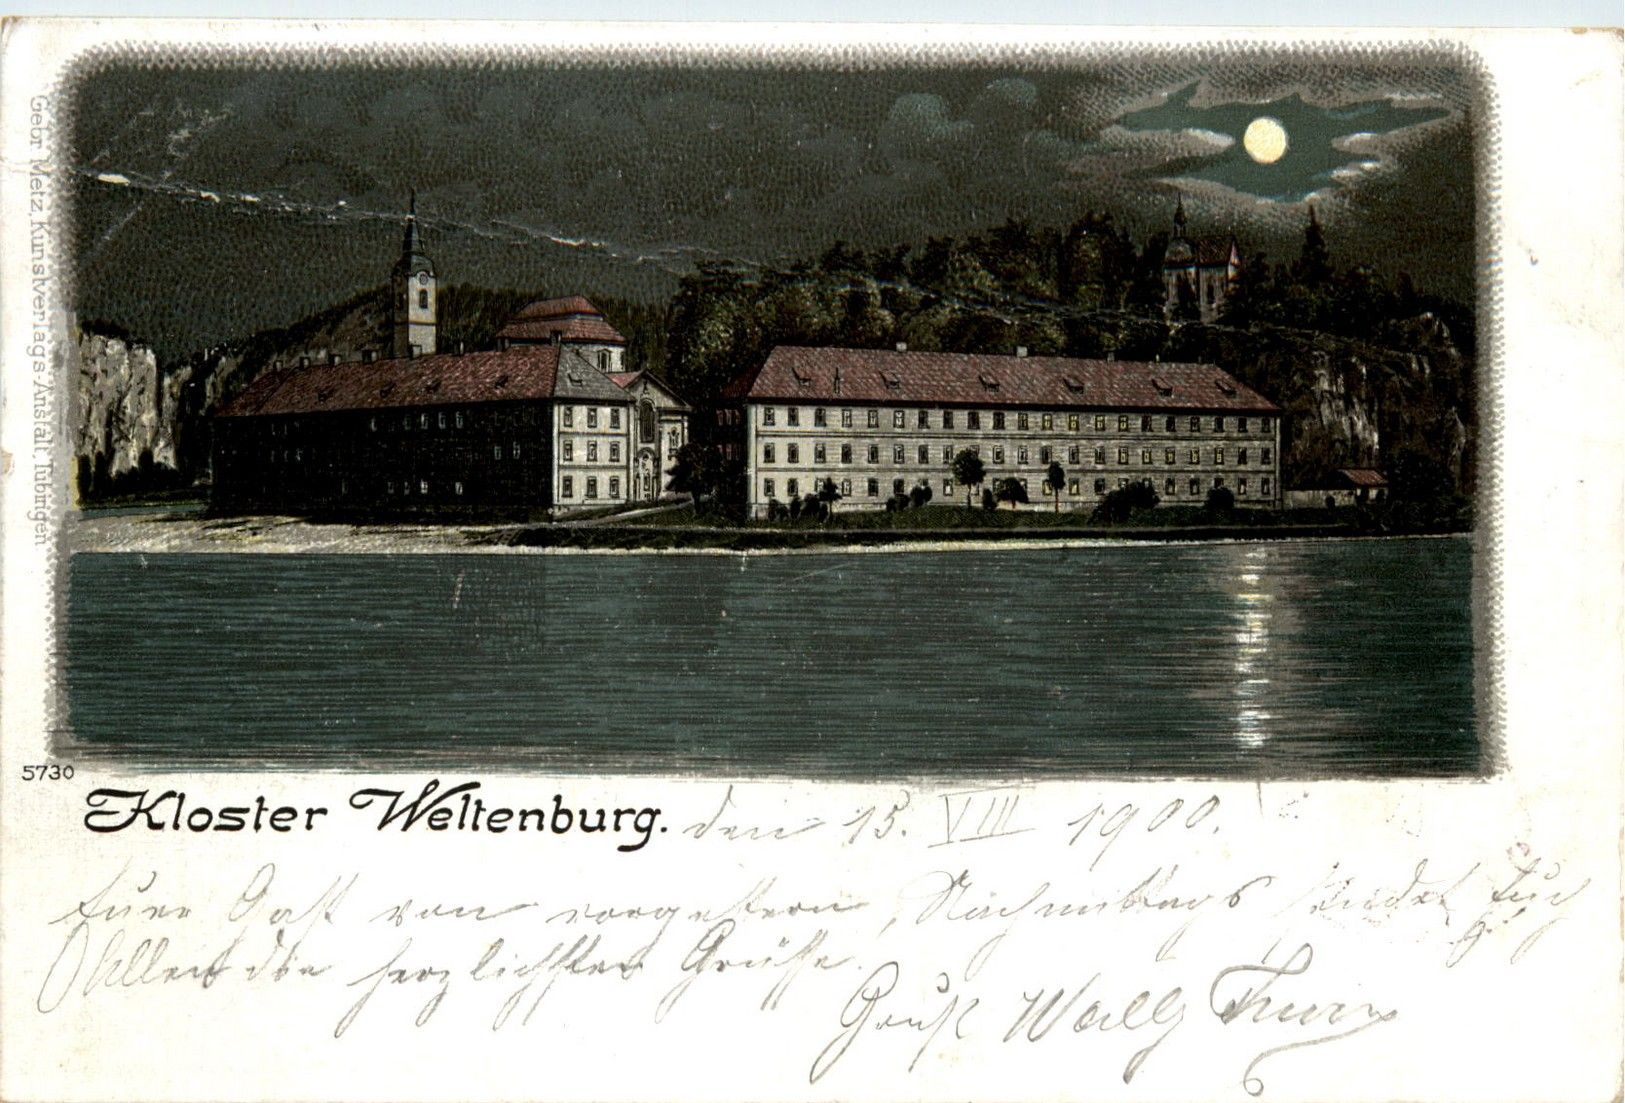 Gebr. Metz, Kunstverlags-Anstalt, Tübingen.
5730
Kloster Weltenburg. den 15. VIII 1900.
Euer Gast von vorgestern, Nachmittags sendet Euch
Allen die herzlichsten Grüsse.
Gruß Wally